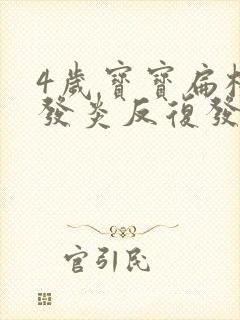 4歲寶寶扁桃
發炎反復發
官引民